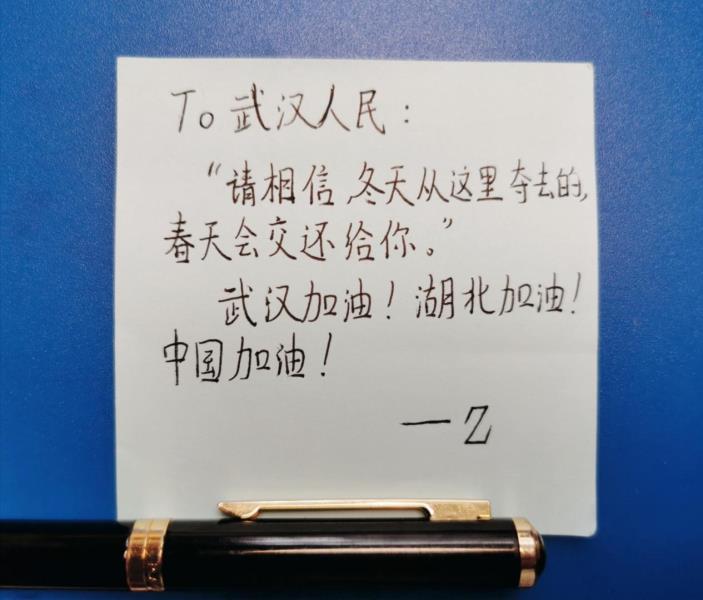 To 武汉人民：
“请相信,冬天从这里夺去的,
春天会交还给你。”
武汉加油！湖北加油！
中国加油！
—Z